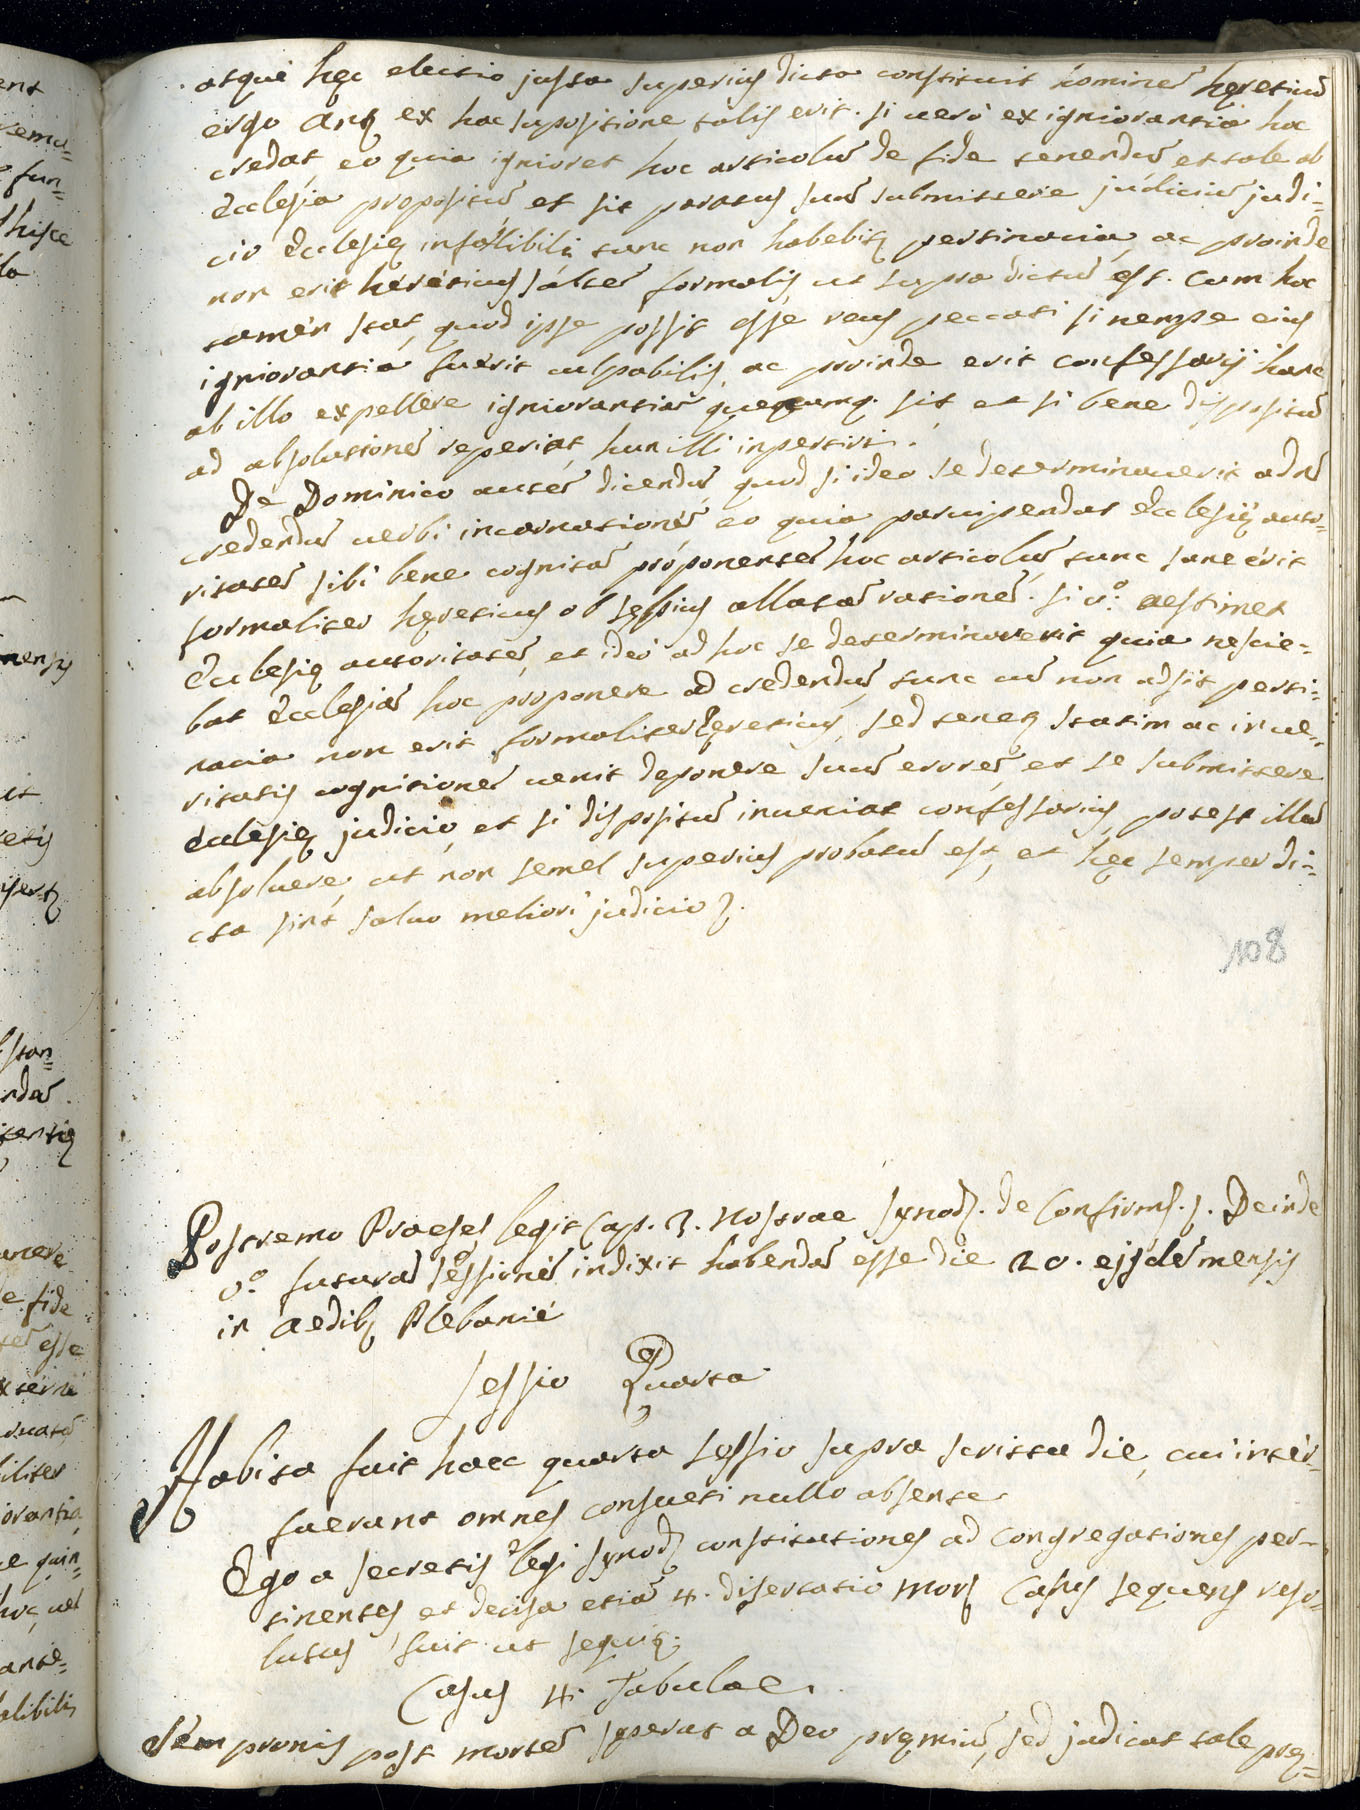 atque hęc electio juxta superius dicta constituit hominē hęreticū
ergo Anꝫ ex hac supositione talis erit. si uerò ex ignioràntia hoc
credat, eò quia ignioret hoc articolū de fide tenendū et tale ab
Ecclesia propositū et sit paratus suū submittere judiciū judi=
cio Ecclesię infallibili tunc non habebitꝫ pertinacia, ac proinde
non erit héréticus sáltē formalis ut supra dictū est. Cum hoc
tamén stat, quod ipse possit esse reus peccati si nempe eius
ignioràntia fuerit culpabilis, ac proinde erit confessarij hanc
ab illo expellere ignioràntiā quęcumq. sit et si bene dispositū
ad absolutionē reperiat, hun illi inpertiri.
De Dominico autē dicendū, quod si ideo se determinauerit ad nō
credendū uerbi incarnationē eo quia paruipendat Ecclesię auto=
ritatē sibi bene cognitā próponentē hoc articolū, tunc sane érit
formaliter hęreticus ob sępius allatā rationē. si ũ.º aestimet
Ecclesię autoritatē, et ideò ad hoc se determinauerit quia nescie=
bat Ecclesiā hoc proponere ad credendū, tunc cū non adsit perti=
nacia non erit formaliter hęreticus, sed tenetꝫ statim ac in ue=
ritatis cognitionē uenit deponere suū errorē et se submittere
Ecclesię judicio, et si dispositū inueniat confessarius potest illū
absoluere, ut non semel superius probatū est, et hęc semper di=
cta sint saluo meliori judicio ꝫ.
108
Postremo Praeses legit Cap. 3. nostrae synodꝫ. de Confirmꝫ. s. Deinde
ũ.º futurā sessionē indixit habendā esse die 20. ejsdē mensis
in Aedibꝫ Plebaniè
Sessio Quarta
Habita fuit haec quarta sessio supra scritta die, cui intér=
fuerunt omnes consueti nullo absente
Ego a secretis legi synodꝫ constitutiones ad congregationes per=
tinentes, et decisa etiā 4. disertatiò morꝫ Casus sequens reso=
lutus fuit ut sequiꝫ:
Casus 4. Tabulae.
Sempronius post mortē sperat a Deo pręmiū, sed judicat tale pręꝫ=